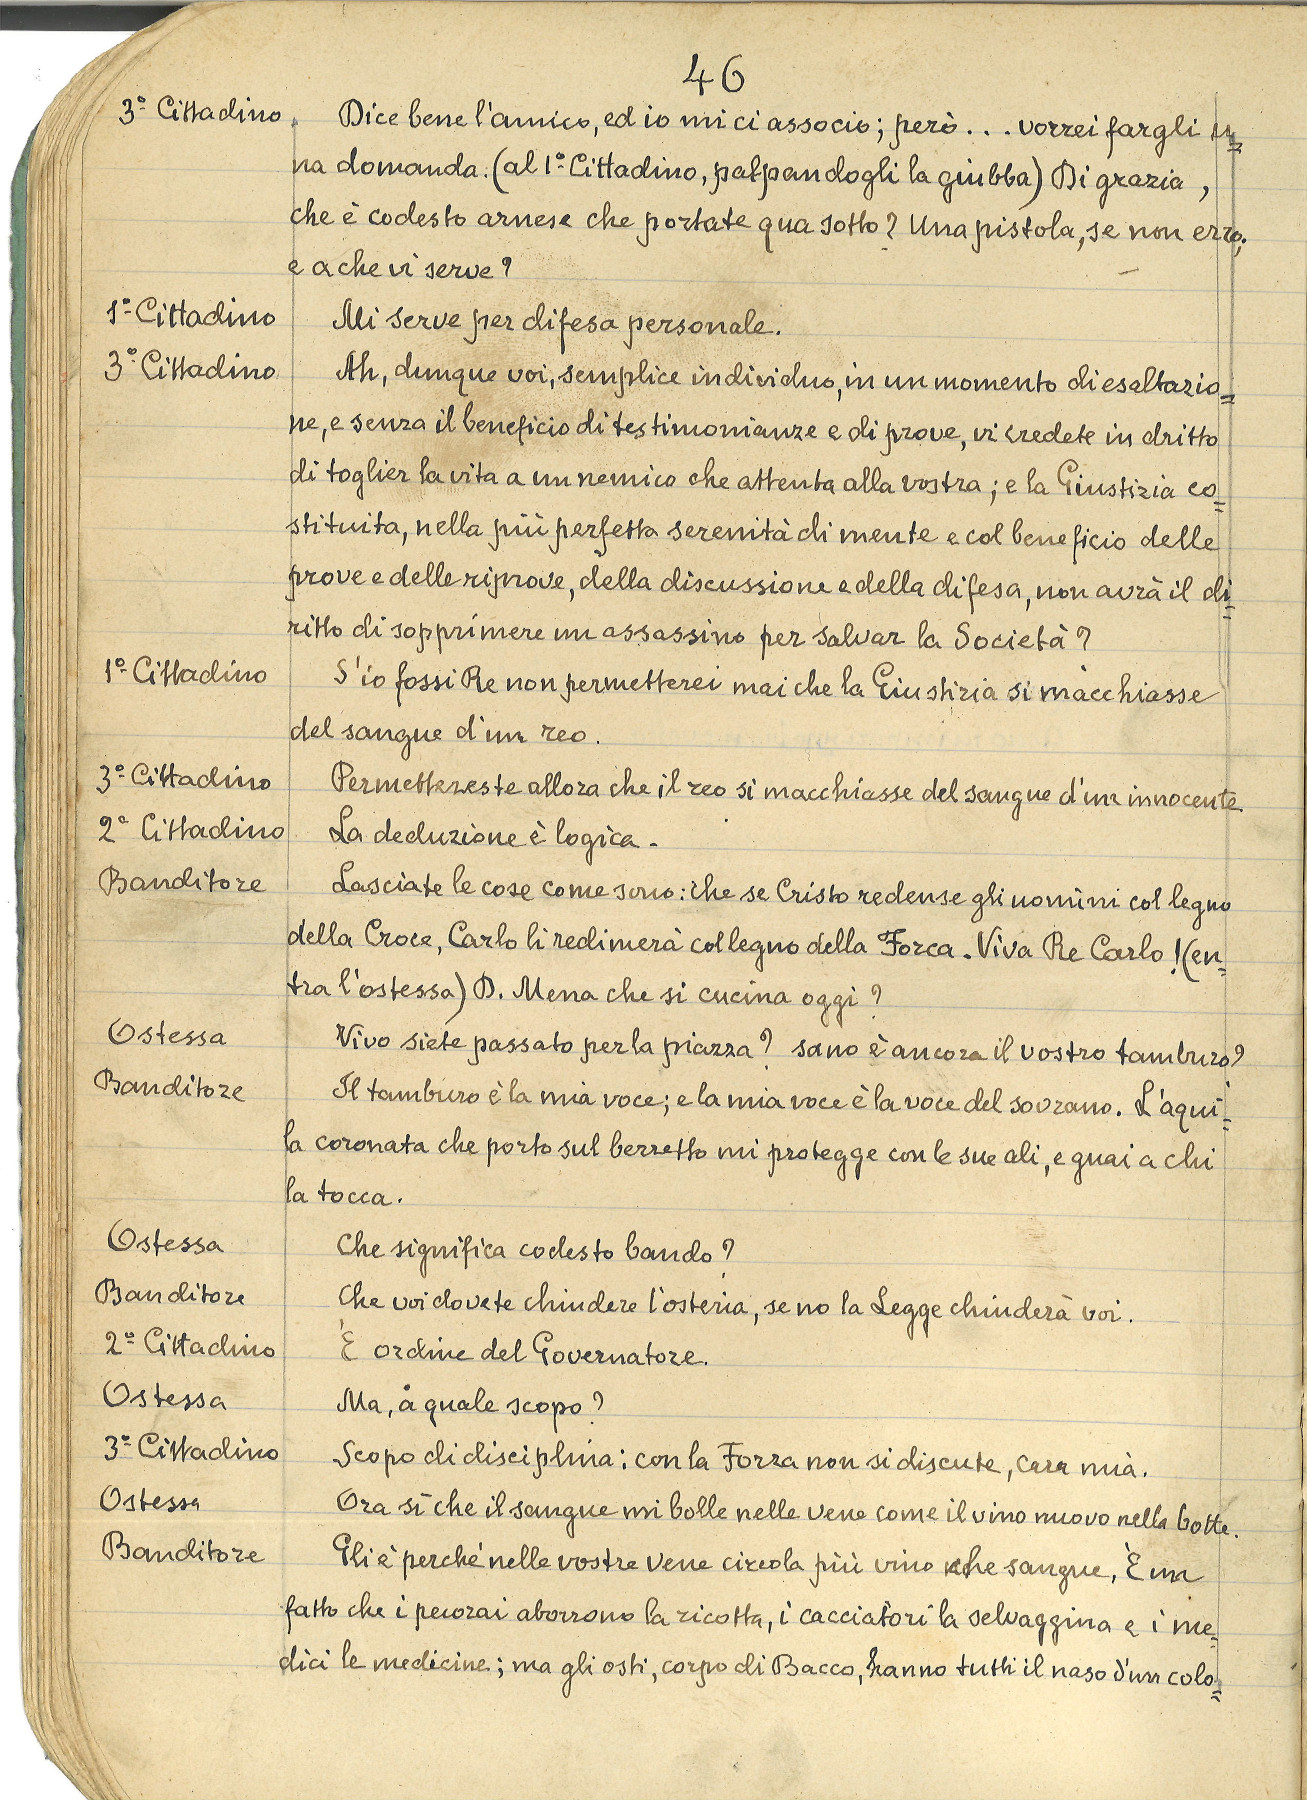 46
3º Cittadino. Dice bene l'amico, ed io mi ci associo; però... vorrei fargli u=
na domanda. (al 1º Cittadino, palpandogli la giubba) Di grazia,
che è codesto arnese che portate qua sotto? Una pistola, se non erro;
e a che vi serve?
1º Cittadino Mi serve per difesa personale.
3º Cittadino Ah, dunque voi, semplice individuo, in un momento di esaltazio=
ne, e senza il beneficio di testimonianze e di prove, vi credete in dritto
di toglier la vita a un nemico che attenta alla vostra; e la Giustizia co=
stituita, nella più perfetta serenità di mente e col beneficio delle
prove e delle riprove, della discussione e della difesa, non avrà il di=
ritto di sopprimere un assassino per salvar la Società?
1º Cittadino S'io fossi Re non permetterei mai che la Giustizia si macchiasse
del sangue d'un reo.
3º Cittadino Permettereste allora che il reo si macchiasse del sangue d'un innocente.
2º Cittadino La deduzione è logica.
Banditore Lasciate le cose come sono: che se Cristo redense gli uomini col legno
della Croce, Carlo li redimerà col legno della Forca. Viva Re Carlo! (en=
tra l'ostessa) D. Mena che si cucina oggi?
Ostessa Vivo siete passato per la piazza? sano è ancora il vostro tamburo?
Banditore Il tamburo è la mia voce; e la mia voce è la voce del sovrano. L'aqui=
la coronata che porto sul berretto mi protegge con le sue ali, e guai a chi
la tocca.
Ostessa Che significa codesto bando?
Banditore Che voi dovete chiudere l'osteria, se no la Legge chiuderà voi.
2º Cittadino È ordine del Governatore.
Ostessa Ma, a quale scopo?
3º Cittadino Scopo di disciplina: con la Forza non si discute, cara mia.
Ostessa Ora sì che il sangue mi bolle nelle vene come il vino nuovo nella botte.
Banditore Gli è perché nelle vostre vene circola più vino che sangue, È un
fatto che i pecorai aborrono la ricotta, i cacciatori la selvaggina e i me=
dici le medicine; ma gli osti, corpo di Bacco, hanno tutti il naso d'un colo=